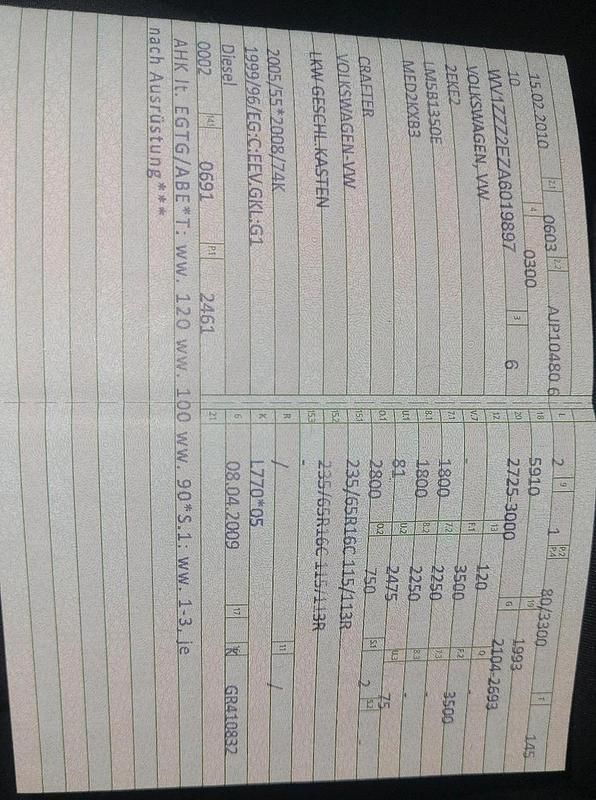 15.02.2010 2.1 0603 2.2 AJP10480 6
10 4 0300
WV1ZZZ2EZA6019897 3 6
VOLKSWAGEN, VW
2EKE2
LM5B1350E
MED2KXB3
CRAFTER
VOLKSWAGEN-VW
LKW GESCHL.KASTEN
2005/55*2008/74K
1999/96/EG:C:EEV.GKL:G1
Diesel
0002 14.1 0691 P.1 2461
L 2 9 1 P.2 P.4 80/3300 T 145
18 5910 19 1993
20 2725-3000 G 2104-2693
12 - 13 120 Q -
V.7 - F.1 3500 F.2 3500
7.1 1800 7.2 2250 7.3 -
8.1 1800 8.2 2250 8.3 -
U.1 81 U.2 2475 U.3 75
O.1 2800 O.2 750 S.1 2 S.2 -
15.1 235/65R16C 115/113R
15.2 235/65R16C 115/113R
15.3 -
R / 11 /
K L770*05
6 08.04.2009 17 K 16 GR410832
21
AHK lt. EGTG/ABE*T: ww. 120 ww. 100 ww. 90*S.1: ww. 1-3, je
nach Ausrüstung***